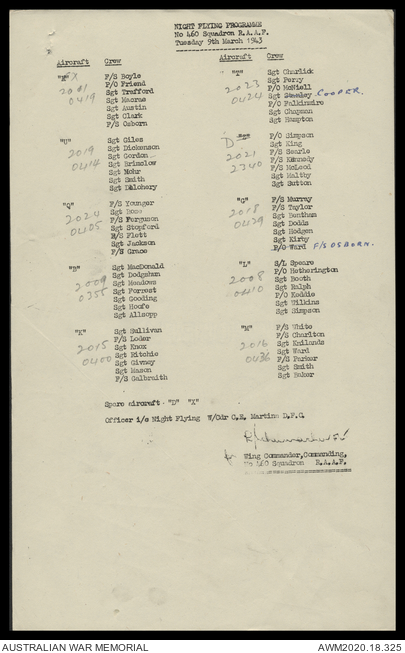 NIGHT FLYING PROGRAMME
No 460 Squadron R.A.A.F.
Tuesday 9th March 1943
Aircraft Crew
X
2001
0419
F/S Boyle
F/O Friend
Sgt Trafford
Sgt Macrae
Sgt Austin
Sgt Clark
F/S Osborn
"U"
2019
0414
Sgt Giles
Sgt Dickenson
Sgt Gordon
Sgt Brimelow
Sgt Mohr
Sgt Smith
Sgt Delohery
"Q"
2024
0405
F/S Younger
Sgt Rose
F/S Ferguson
Sgt Stopford
F/S Flett
Sgt Jackson
F/S Grace
"B"
2009
0355
Sgt MacDonald
Sgt Dodgshun
Sgt Meadows
Sgt Forrest
Sgt Gooding
Sgt Hoofe
Sgt Allsopp
"K"
2015
0400
Sgt Sullivan
F/S Loder
Sgt Knox
Sgt Ritchie
Sgt Givney
Sgt Mason
F/S Galbraith
Aircraft Crew
2023
0424
Sgt Charlick
Sgt Percy
P/O McNiell
Sgt Stanley COOPER.
F/O Falkinmire
Sgt Chapman
Sgt Hampton
D
2021
2340
F/O Simpson
Sgt King
F/S Searle
F/S Kennedy
F/S McLeod
Sgt Maltby
Sgt Sutton
"G"
2018
0429
F/S Murray
F/S Taylor
Sgt Bentham
Sgt Dodds
Sgt Hodgen
Sgt Kirby
P/O Ward F/S OSBORN.
"L"
2008
0410
S/L Speare
F/O Hetherington
Sgt Booth
Sgt Ralph
F/O Keddie
Sgt Wilkins
Sgt Simpson
"M"
2016
0436
F/S White
F/S Charlton
Sgt Knilands
Sgt Ward
F/S Parker
Sgt Smith
Sgt Baker
Spare aircraft - "D" "X"
Officer i/c Night Flying W/Cdr C.E. Martin D.F.C.
for Wing Commander, Commanding,
No 460 Squadron R.A.A.F.
AUSTRALIAN WAR MEMORIAL
AWM2020.18.325